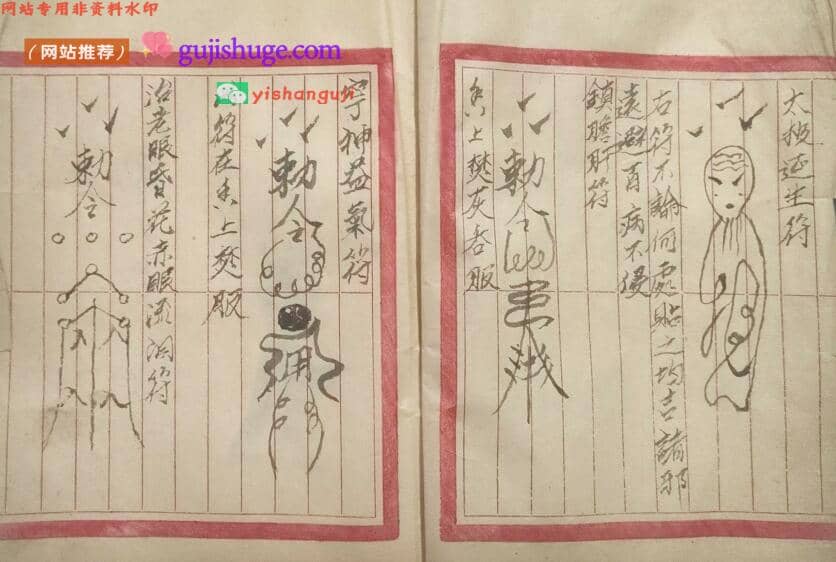 网站专用非资料水印
（网站推荐）
gujishuge.com
yishanguyi
右符不論何處貼之均吉諸邪
遠避百病不侵
鎮膽肝符
勅令
香上焚灰吞服
寧神益氣符
勅令
符在香上焚服
治老眼昏花赤眼流泪符
勅令